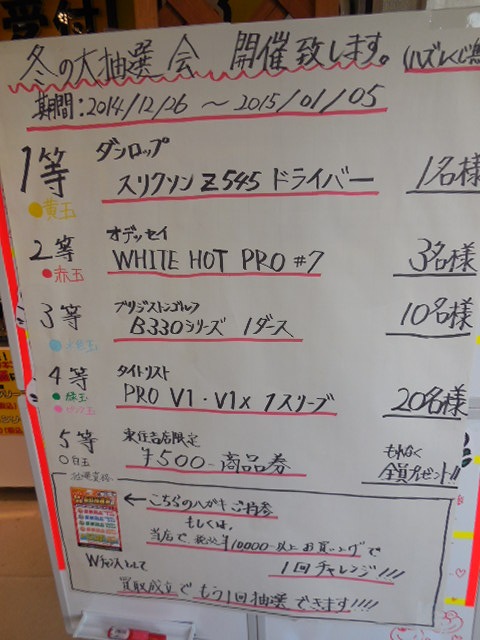 冬の大抽選会 開催致します。(ハズレくじ無
期間:2014/12/26 〜2015/01/05
1等 ダンロップ
●黄玉 スリクソンZ545ドライバー 1名様
2等 オデッセイ
●赤玉 WHITE HOT PRO #7 3名様
3等 ブリジストンゴルフ
●水色玉 B330シリーズ 1ダース 10名様
4等 タイトリスト
●緑玉
●ピンク玉 PRO V1・V1x 1スリーブ 20名様
5等 実行当店限定 もれなく
○白玉 ¥500-商品券 全員プレゼント!!
抽選資格
←こちらのハガキご持参
もしくは、
当店で、税込¥10,000-以上お買いングで
Wチャンスとして 1回チャレンジ!!!
買取成立でもう1回抽選できます!!!!